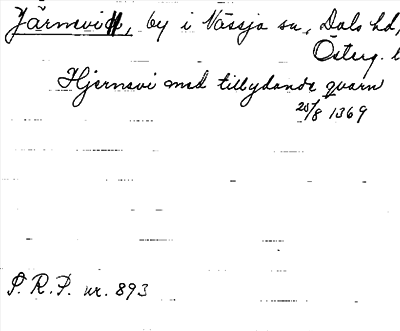 Järnsvi, by i Nässja sn, Dals hd,
Österg. l
Hjernsvi med tillydande qvarn
25/8 1369
P. R. P. nr. 893